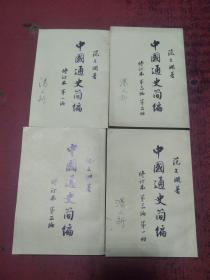 范文澜著
中國通史简编
修订本 第一编
范文澜著
中國通史简编
修订本 第三编 第二册
范文澜著
中國通史简编
修订本 第二编
范文澜著
中國通史简编
修订本 第三编 第一册